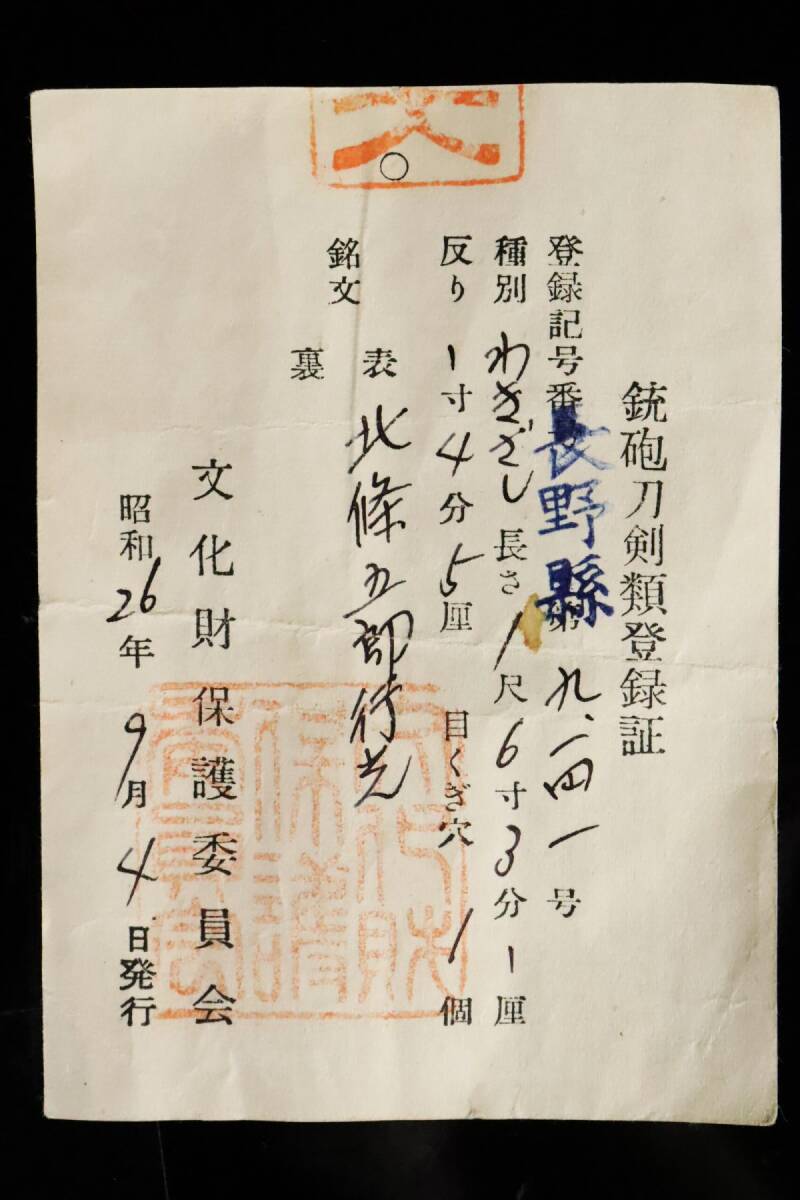 銃砲刀剣類登録証
登録記号番 長野縣 第九、一四一号
種別 わきざし 長さ 1尺6寸3分1厘
反り 1寸4分5厘 目くぎ穴 1個
銘文 表 北條五郎行光
裏
文化財保護委員会
昭和26年9月4日発行